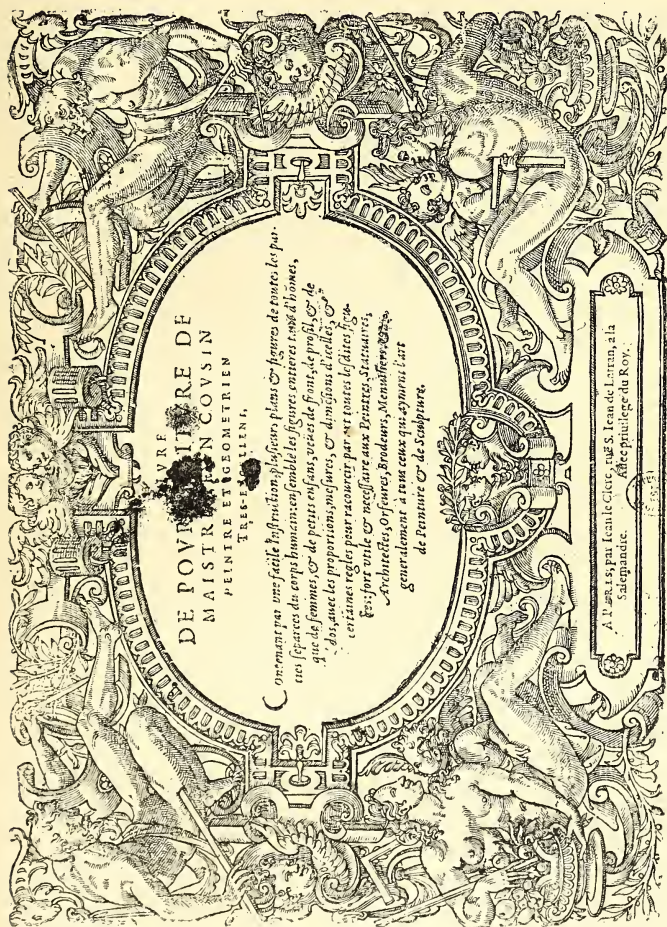 VRE
DE POVR ITVRE DE
MAISTRE IN COVSIN
PEINTRE ET GEOMETRIEN
TRES- LLENT,
Contenant par vne facile Instruction, plusieurs plans & figures de toutes les par-
ties separees du corps humain: ensemble les figures entieres tant d'hõmes,
que de femmes, & de petits enfans, veües de front, de profil, & de
dos, auec les proportions, mesures, & dimensions d'icelles, &
certaines regles pour racourcir par art toutes lesdites figu-
fort vtile & necessaire aux Peintres, Statuaires,
Architectes, Orfeures, Brodeurs, Menusiers,
generalement à tous ceux qui ayment l'art
de Peinture & de Sculpture.
A PARIS, par Iean le Clerc, ruë S. Iean de Latran, à la
Salemandre. Auec priuilege du Roy.